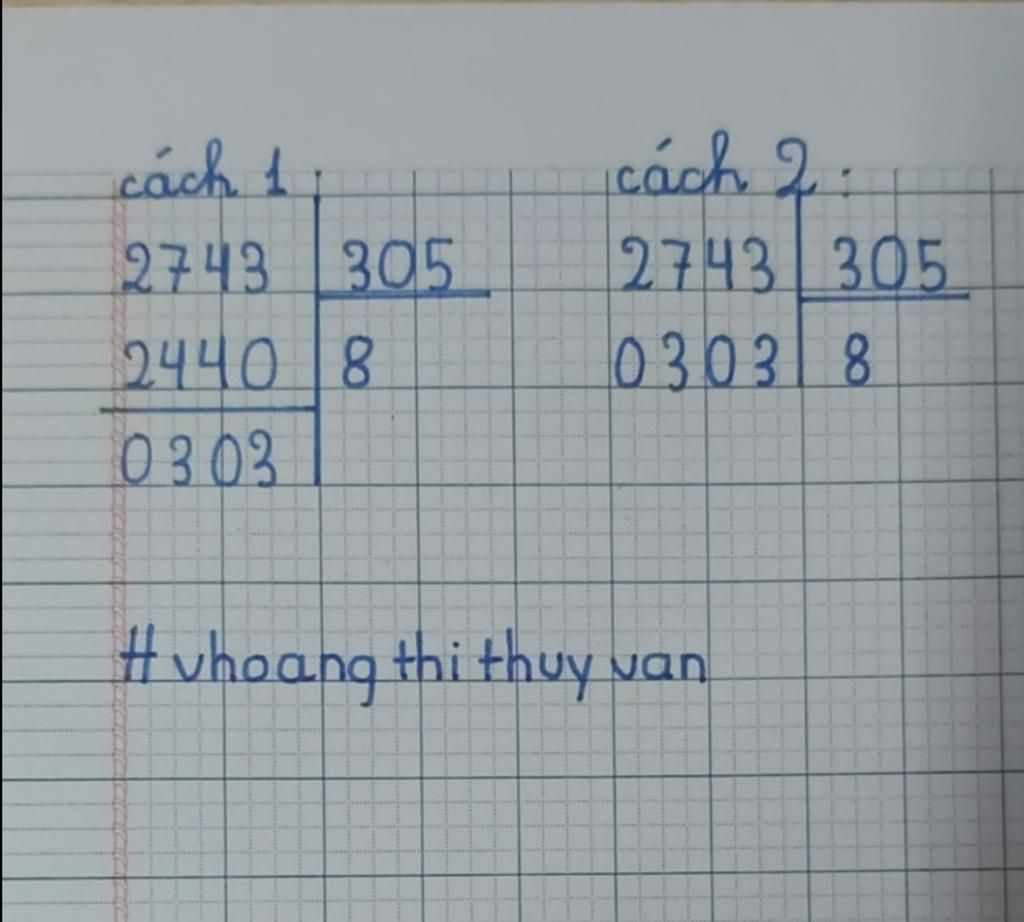 cách 1 cách 2:
2743 305 2743 305
2440 8 0303 8
0303
# vhoang thi thuy van